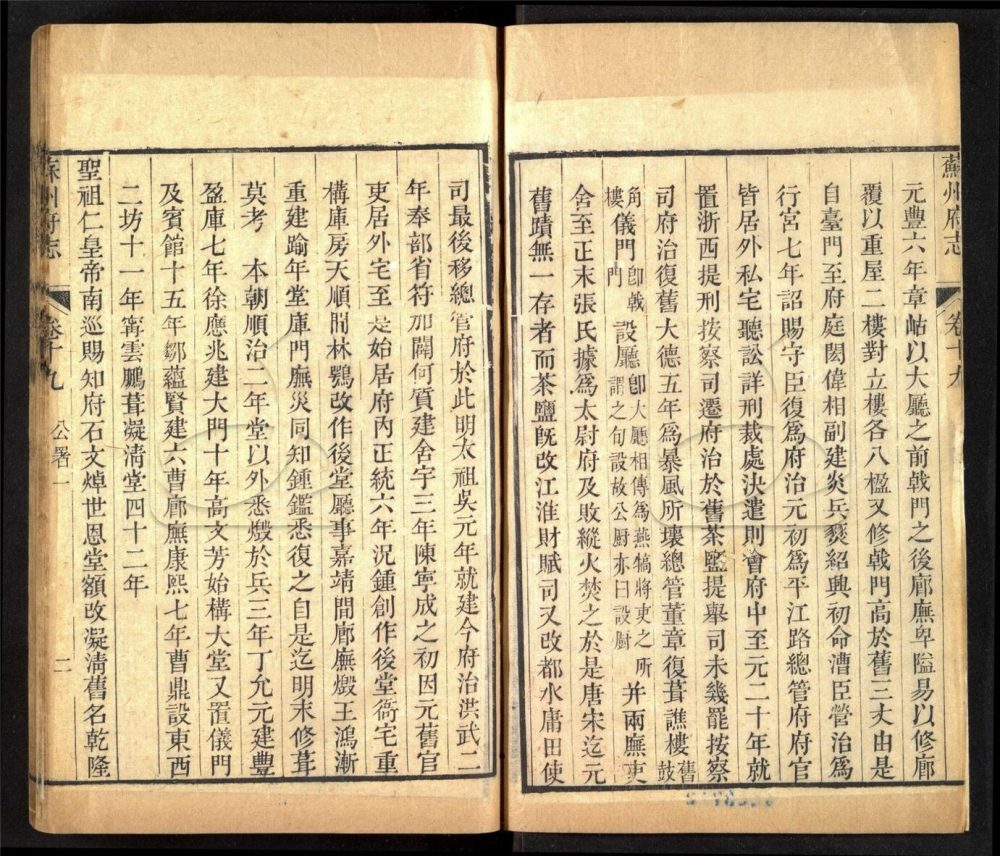 蘇州府志
卷十九
元豐六年章岵以大廳之前戟門之後廊廡卑隘易以修廊
覆以重屋二樓對立樓各八楹又修戟門高於舊三丈由是
自臺門至府庭閎偉相副建炎兵燹紹興初命漕臣營治爲
行宮七年詔賜守臣復爲府治元初爲平江路總管府府官
皆居外私宅聽訟詳刑裁處決遣則會府中至元二十年就
置浙西提刑按察司遷府治於舊茶鹽提舉司未幾罷按察
司府治復舊大德五年爲暴風所壞總管董章復葺譙樓舊鼓
角樓儀門卽戟門設廳卽大廳相傳爲燕犒將吏之所謂之旬設故公廚亦曰設廚并兩廡吏
舍至正末張氏據爲太尉府及敗縱火焚之於是唐宋迄元
舊蹟無一存者而茶鹽旣改江淮財賦司又改都水庸田使
司最後移總管府於此明太祖吳元年就建今府治洪武二
年奉部省符加闢何質建舍宇三年陳寧成之初因元舊官
吏居外宅至是始居府內正統六年況鍾創作後堂衙宅重
構庫房天順間林鶚改作後堂廳事嘉靖間廊廡燬王鴻漸
重建踰年堂庫門廡災同知鍾鑑悉復之自是迄明末修葺
莫考 本朝順治二年堂以外悉燬於兵三年丁允元建豐
盈庫七年徐應兆建大門十年高文芳始構大堂又置儀門
及賓館十五年鄒蘊賢建六曹廊廡康熙七年曹鼎設東西
二坊十一年甯雲鵬葺凝清堂四十二年
聖祖仁皇帝南巡賜知府石文焯世恩堂額改凝清舊名乾隆
蘇州府志
卷十九
公署一
二